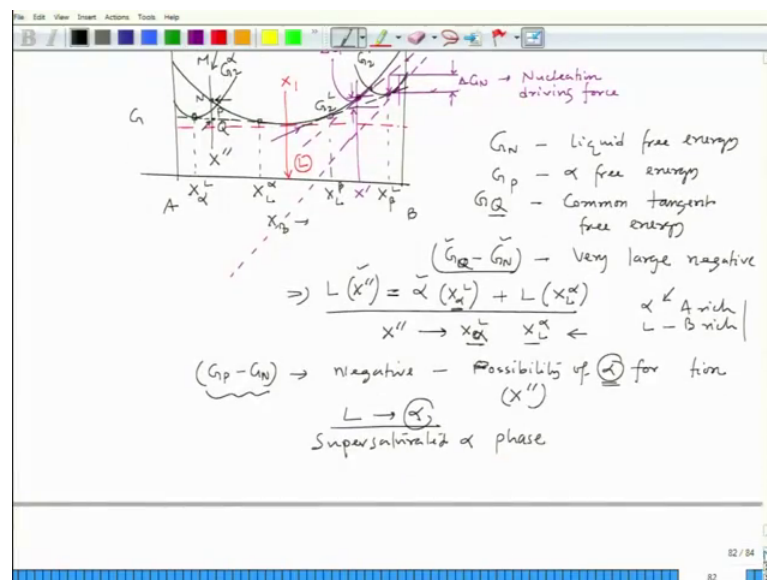 File Edit View Insert Actions Tools Help
B I
M G₂^α
N
P
Q
G
X''
X₁
L
G₂^L
ΔG_N → Nucleation
driving force
X_α^L X_L^α X_L^β X' X_β^L
A B
X_B →
G_N – Liquid free energy
G_P – α free energy
G_Q – Common tangent
free energy
(G_Q – G_N) – Very large negative
⇒ L (X'') = α (X_α^L) + L (X_L^α)
X'' → X_α^L X_L^α ←
α ↙ A rich
L – B rich
(G_P – G_N) → Negative – Possibility of α for tion
(X'')
L → α,
Supersaturated α phase
82 / 84
82